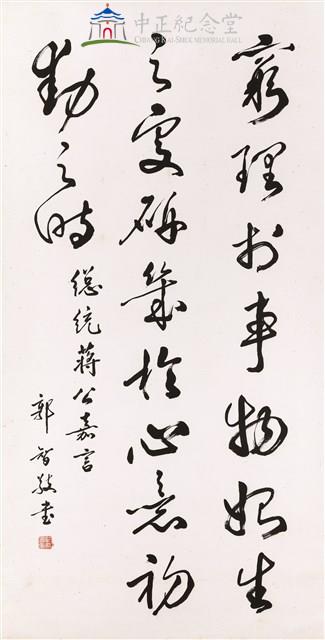 中正紀念堂
CHIANG KAI-SHEK MEMORIAL HALL
窮理於事物始生
之處研幾於心意初
動之時
總統蔣公嘉言
郭智敬書